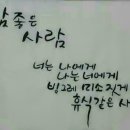 참 좋은
사람
너는 나에게
나는 너에게
빙그레 미소 짓게
휴식같은 사